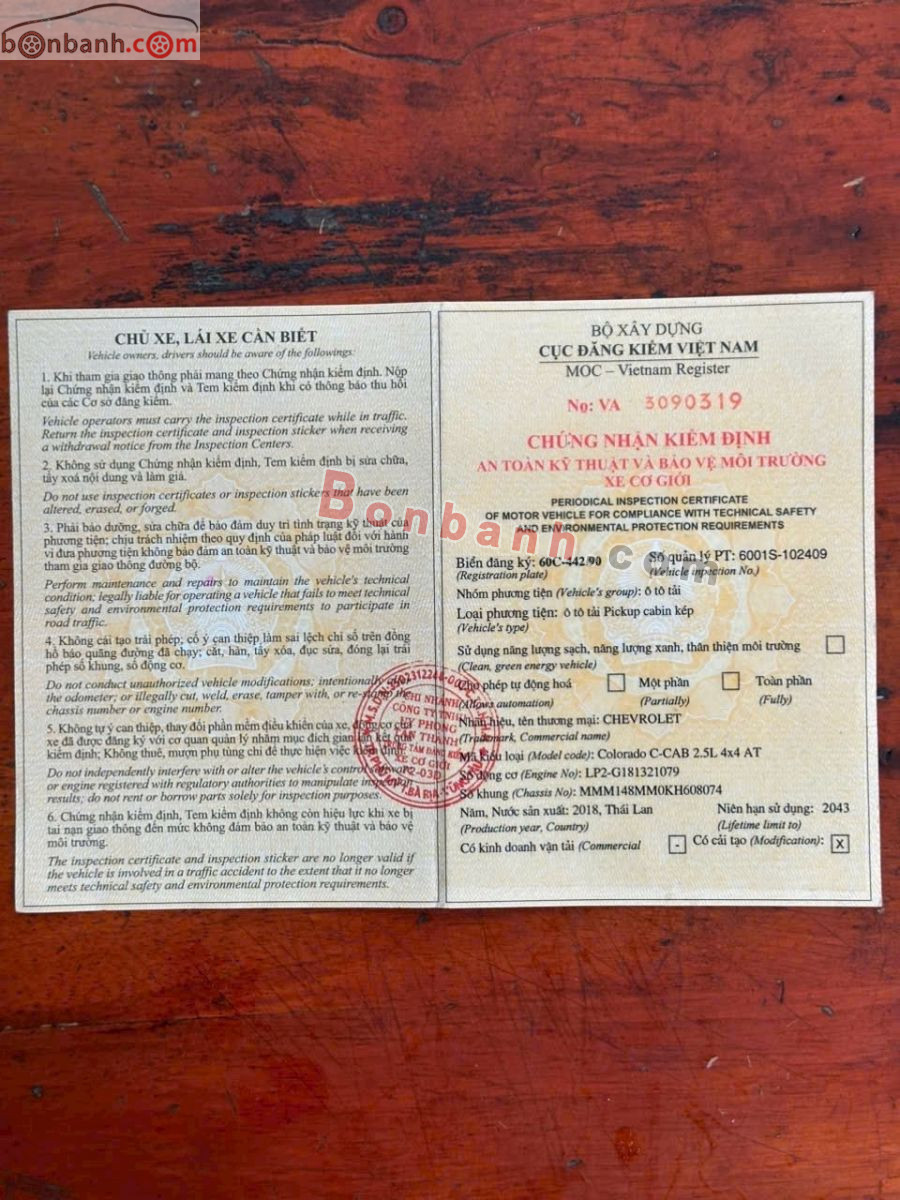 bonbanh.com
CHỦ XE, LÁI XE CẦN BIẾT
Vehicle owners, drivers should be aware of the followings:
1. Khi tham gia giao thông phải mang theo Chứng nhận kiểm định. Nộp
lại Chứng nhận kiểm định và Tem kiểm định khi có thông báo thu hồi
của các Cơ sở đăng kiểm.
Vehicle operators must carry the inspection certificate while in traffic.
Return the inspection certificate and inspection sticker when receiving
a withdrawal notice from the Inspection Centers.
2. Không sử dụng Chứng nhận kiểm định, Tem kiểm định bị sửa chữa,
tẩy xoá nội dung và làm giả.
Do not use inspection certificates or inspection stickers that have been
altered, erased, or forged.
3. Phải bảo dưỡng, sửa chữa để bảo đảm duy trì tình trạng kỹ thuật của
phương tiện; chịu trách nhiệm theo quy định của pháp luật đối với hành
vi đưa phương tiện không bảo đảm an toàn kỹ thuật và bảo vệ môi trường
tham gia giao thông đường bộ.
Perform maintenance and repairs to maintain the vehicle's technical
condition; legally liable for operating a vehicle that fails to meet technical
safety and environmental protection requirements to participate in
road traffic.
4. Không cải tạo trái phép; cố ý can thiệp làm sai lệch chỉ số trên đồng
hồ báo quãng đường đã chạy; cắt, hàn, tẩy xóa, đục sửa, đóng lại trái
phép số khung, số động cơ.
Do not conduct unauthorized vehicle modifications; intentionally alter
the odometer; or illegally cut, weld, erase, tamper with, or re-stamp the
chassis number or engine number.
5. Không tự ý can thiệp, thay đổi phần mềm điều khiển của xe, động cơ của
xe đã được đăng ký với cơ quan quản lý nhằm mục đích gian lận kết quả
kiểm định; Không thuê, mượn phụ tùng chỉ để thực hiện việc kiểm định.
Do not independently interfere with or alter the vehicle's control software
or engine registered with regulatory authorities to manipulate inspection
results; do not rent or borrow parts solely for inspection purposes.
6. Chứng nhận kiểm định, Tem kiểm định không còn hiệu lực khi xe bị
tai nạn giao thông đến mức không đảm bảo an toàn kỹ thuật và bảo vệ
môi trường.
The inspection certificate and inspection sticker are no longer valid if
the vehicle is involved in a traffic accident to the extent that it no longer
meets technical safety and environmental protection requirements.
BỘ XÂY DỰNG
CỤC ĐĂNG KIỂM VIỆT NAM
MOC – Vietnam Register
No: VA 3090319
CHỨNG NHẬN KIỂM ĐỊNH
AN TOÀN KỸ THUẬT VÀ BẢO VỆ MÔI TRƯỜNG
XE CƠ GIỚI
PERIODICAL INSPECTION CERTIFICATE
OF MOTOR VEHICLE FOR COMPLIANCE WITH TECHNICAL SAFETY
AND ENVIRONMENTAL PROTECTION REQUIREMENTS
Biển đăng ký: 60C-442.90 Số quản lý PT: 6001S-102409
(Registration plate) (Vehicle inpection No.)
Nhóm phương tiện (Vehicle's group): ô tô tải
Loại phương tiện: ô tô tải Pickup cabin kép
(Vehicle's type)
Sử dụng năng lượng sạch, năng lượng xanh, thân thiện môi trường
(Clean, green energy vehicle)
Cho phép tự động hoá Một phần Toàn phần
(Allows automation) (Partially) (Fully)
Nhãn hiệu, tên thương mại: CHEVROLET
(Trademark, Commercial name)
Mã kiểu loại (Model code): Colorado C-CAB 2.5L 4x4 AT
Số động cơ (Engine No): LP2-G181321079
Số khung (Chassis No): MMM148MM0KH608074
Năm, Nước sản xuất: 2018, Thái Lan Niên hạn sử dụng: 2043
(Production year, Country) (Lifetime limit to)
Có kinh doanh vận tải (Commercial - Có cải tạo (Modification): X
CHI NHÁNH
CÔNG TY TNHH
TRUNG TÂM ĐĂNG KIỂM
XE CƠ GIỚI
Bonbanh.com